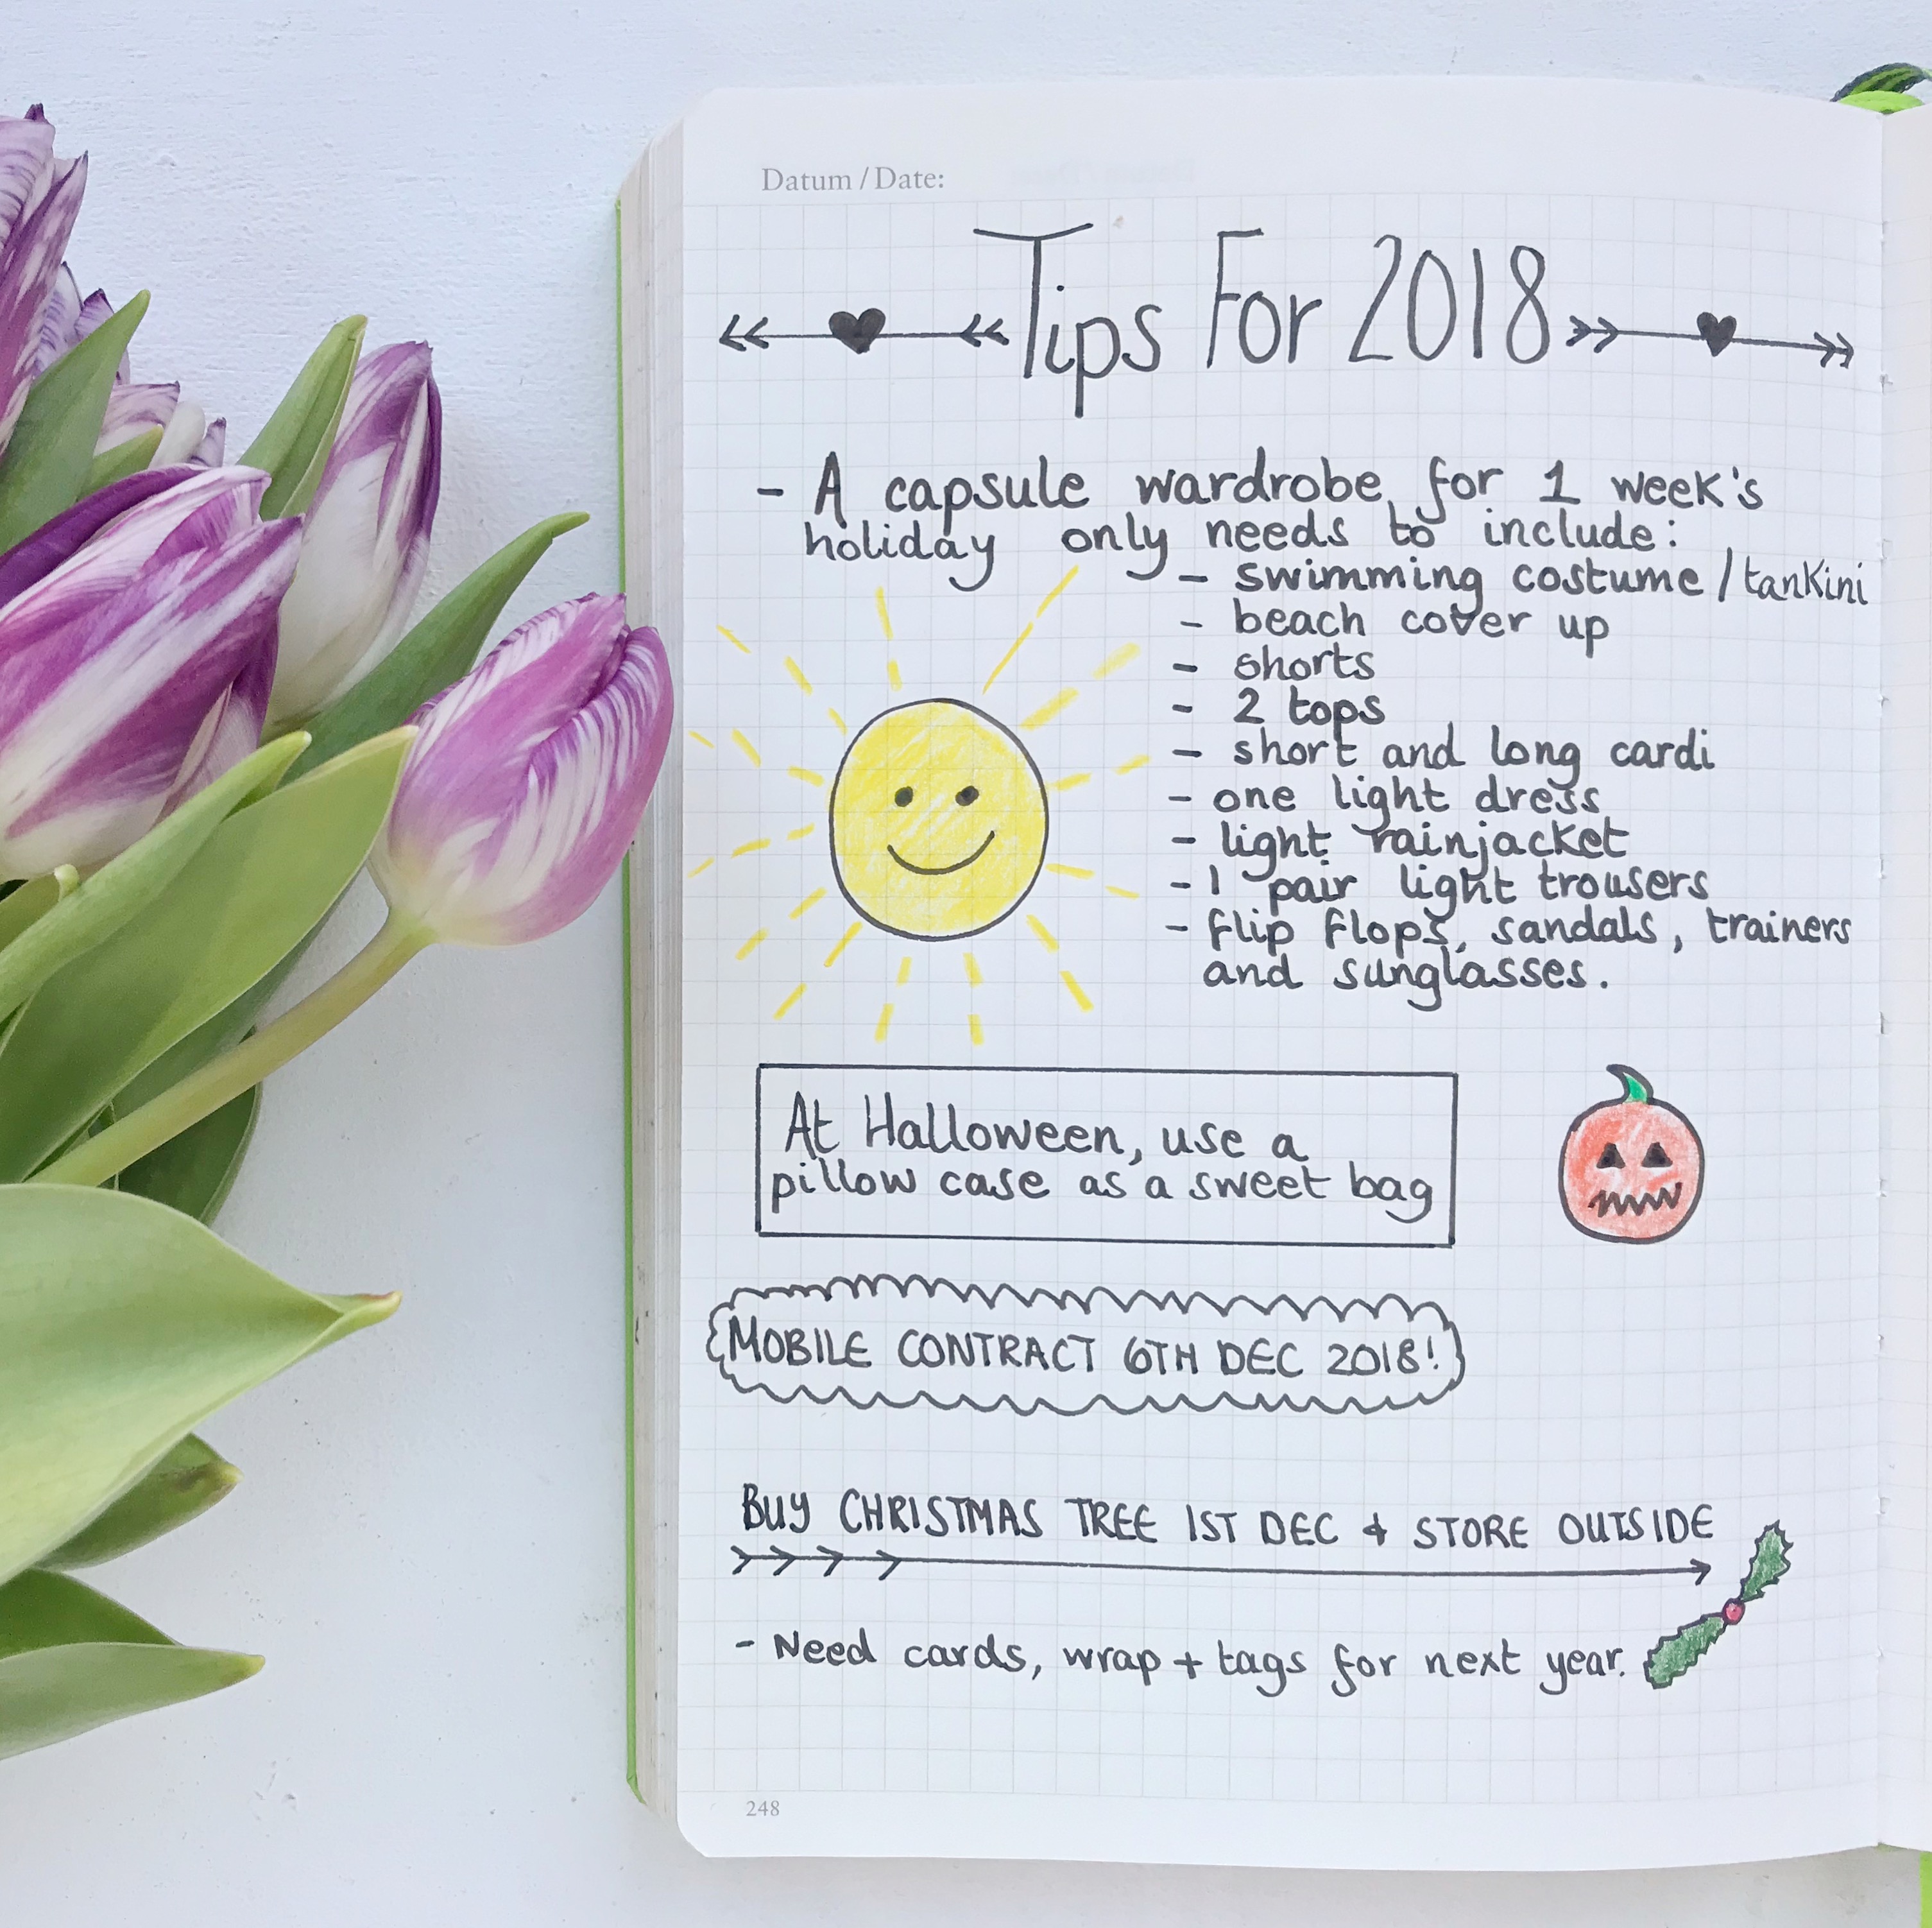 Datum / Date:
Tips For 2018
- A capsule wardrobe for 1 week's
holiday only needs to include:
- swimming costume / tankini
- beach cover up
- shorts
- 2 tops
- short and long cardi
- one light dress
- light rainjacket
- 1 pair light trousers
- flip flops, sandals, trainers
and sunglasses.
At Halloween, use a
pillow case as a sweet bag
MOBILE CONTRACT 6TH DEC 2018!
BUY CHRISTMAS TREE 1ST DEC & STORE OUTSIDE
- Need cards, wrap + tags for next year.
248